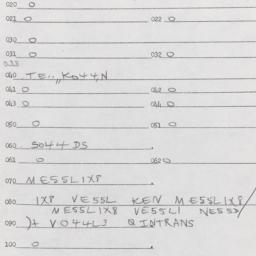 020 0
021 0 022 0
030 0
031 0 032 0
033
040 TE.,,KO44,N
041 0 042 0
043 0 044 0
050 0 051 0
060 SO44 DS
061 0 062 0
070 MESSL1X8
080 1X8 VESSL KEN MESSL1X8/
MESSL1X8 VESSL1
090 )+ VO44L3 QINTRANS
100 0